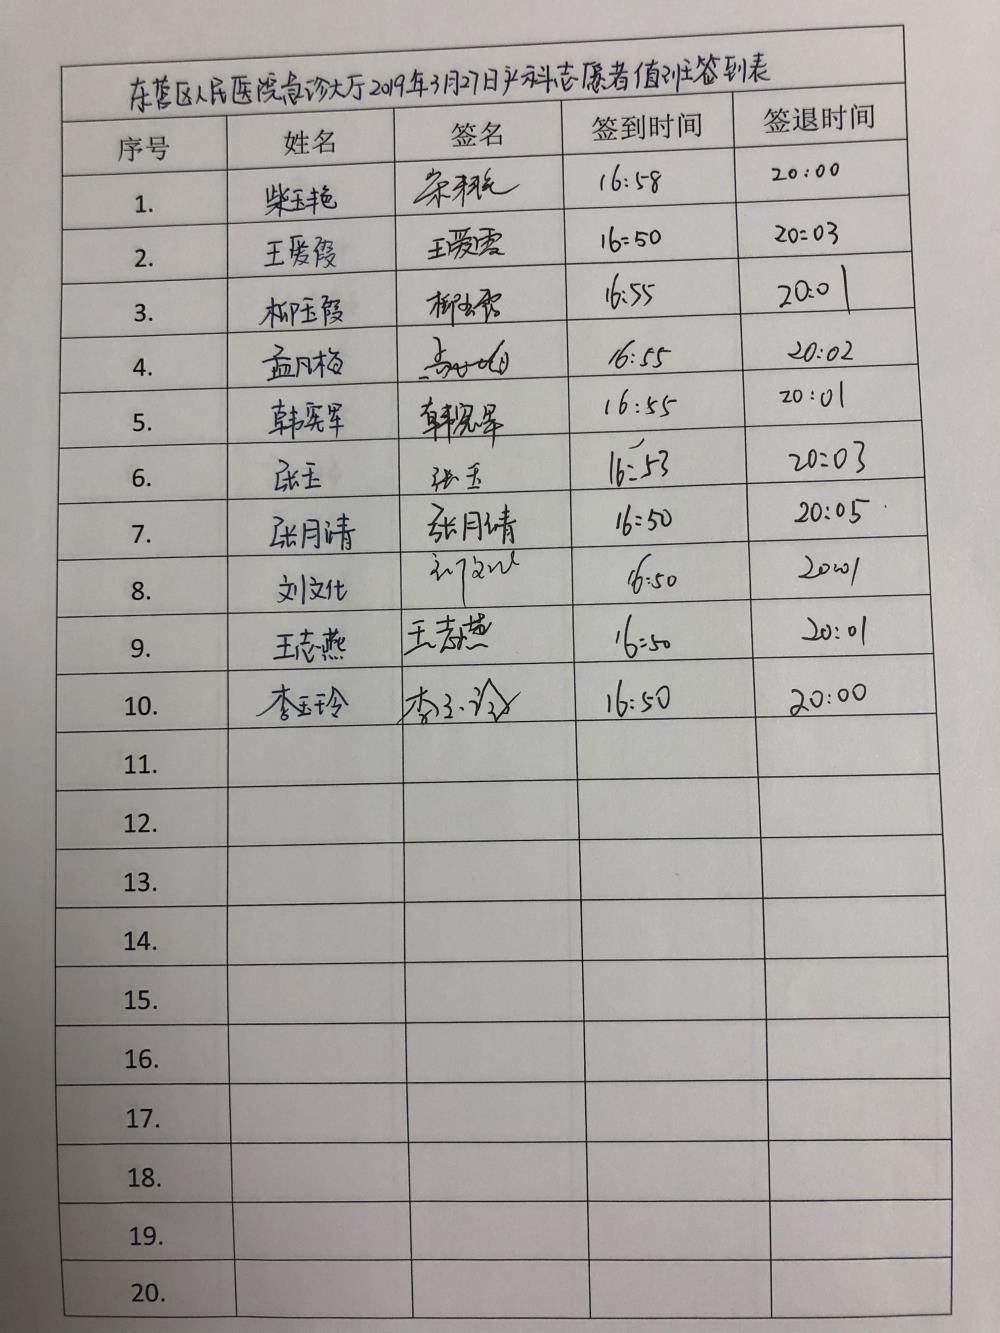 东营区人民医院急诊大厅2019年3月27日产科志愿者值班签到表
序号 姓名 签名 签到时间 签退时间
1. 柴玉艳 16:58 20:00
2. 王爱霞 王爱霞 16:50 20:03
3. 柳玉霞 柳玉霞 16:55 20:01
4. 孟凡梅 16:55 20:02
5. 韩宪军 韩宪军 16:55 20:01
6. 张玉 张玉 16:53 20:03
7. 张月清 张月倩 16:50 20:05
8. 刘文化 16:50 20:01
9. 王志燕 王志燕 16:50 20:01
10. 李玉玲 李玉玲 16:50 20:00
11.
12.
13.
14.
15.
16.
17.
18.
19.
20.